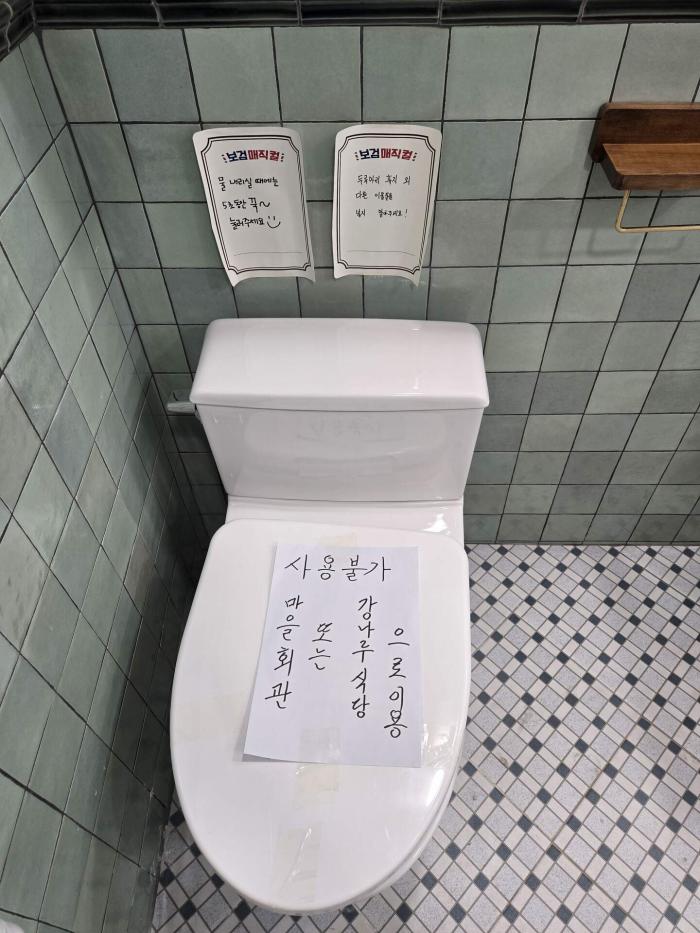 보검매직컬
물 내리실 때에는
5초동안 꾹~
눌러주세요
보검매직컬
두루마리 휴지 외
다른 이물질은
넣지 말아주세요!
사용불가
마을회관
또는
강나루식당
으로이용